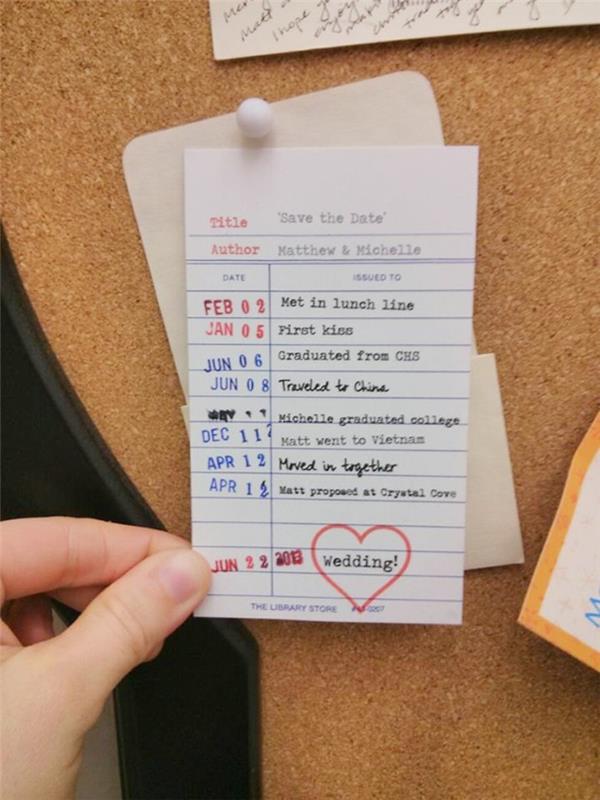 Title 'Save the Date'
Author Matthew & Michelle
DATE ISSUED TO
FEB 0 2 Met in lunch line
JAN 0 5 First kiss
JUN 0 6 Graduated from CHS
JUN 0 8 Traveled to China
Michelle graduated college
DEC 1 1 Matt went to Vietnam
APR 1 2 Moved in together
APR 1 2 Matt proposed at Crystal Cove
JUN 2 2 2013 Wedding!
THE LIBRARY STORE